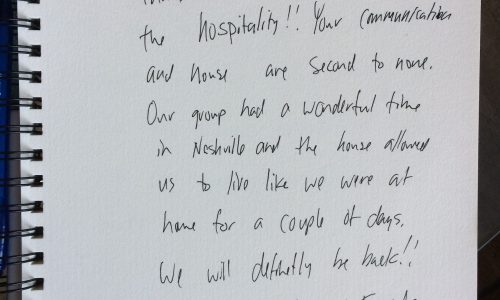 the hospitality!! Your communication
and house are second to none.
Our group had a wonderful time
in Nashville and the house allowed
us to live like we were at
home for a couple of days.
We will definetly be back!!